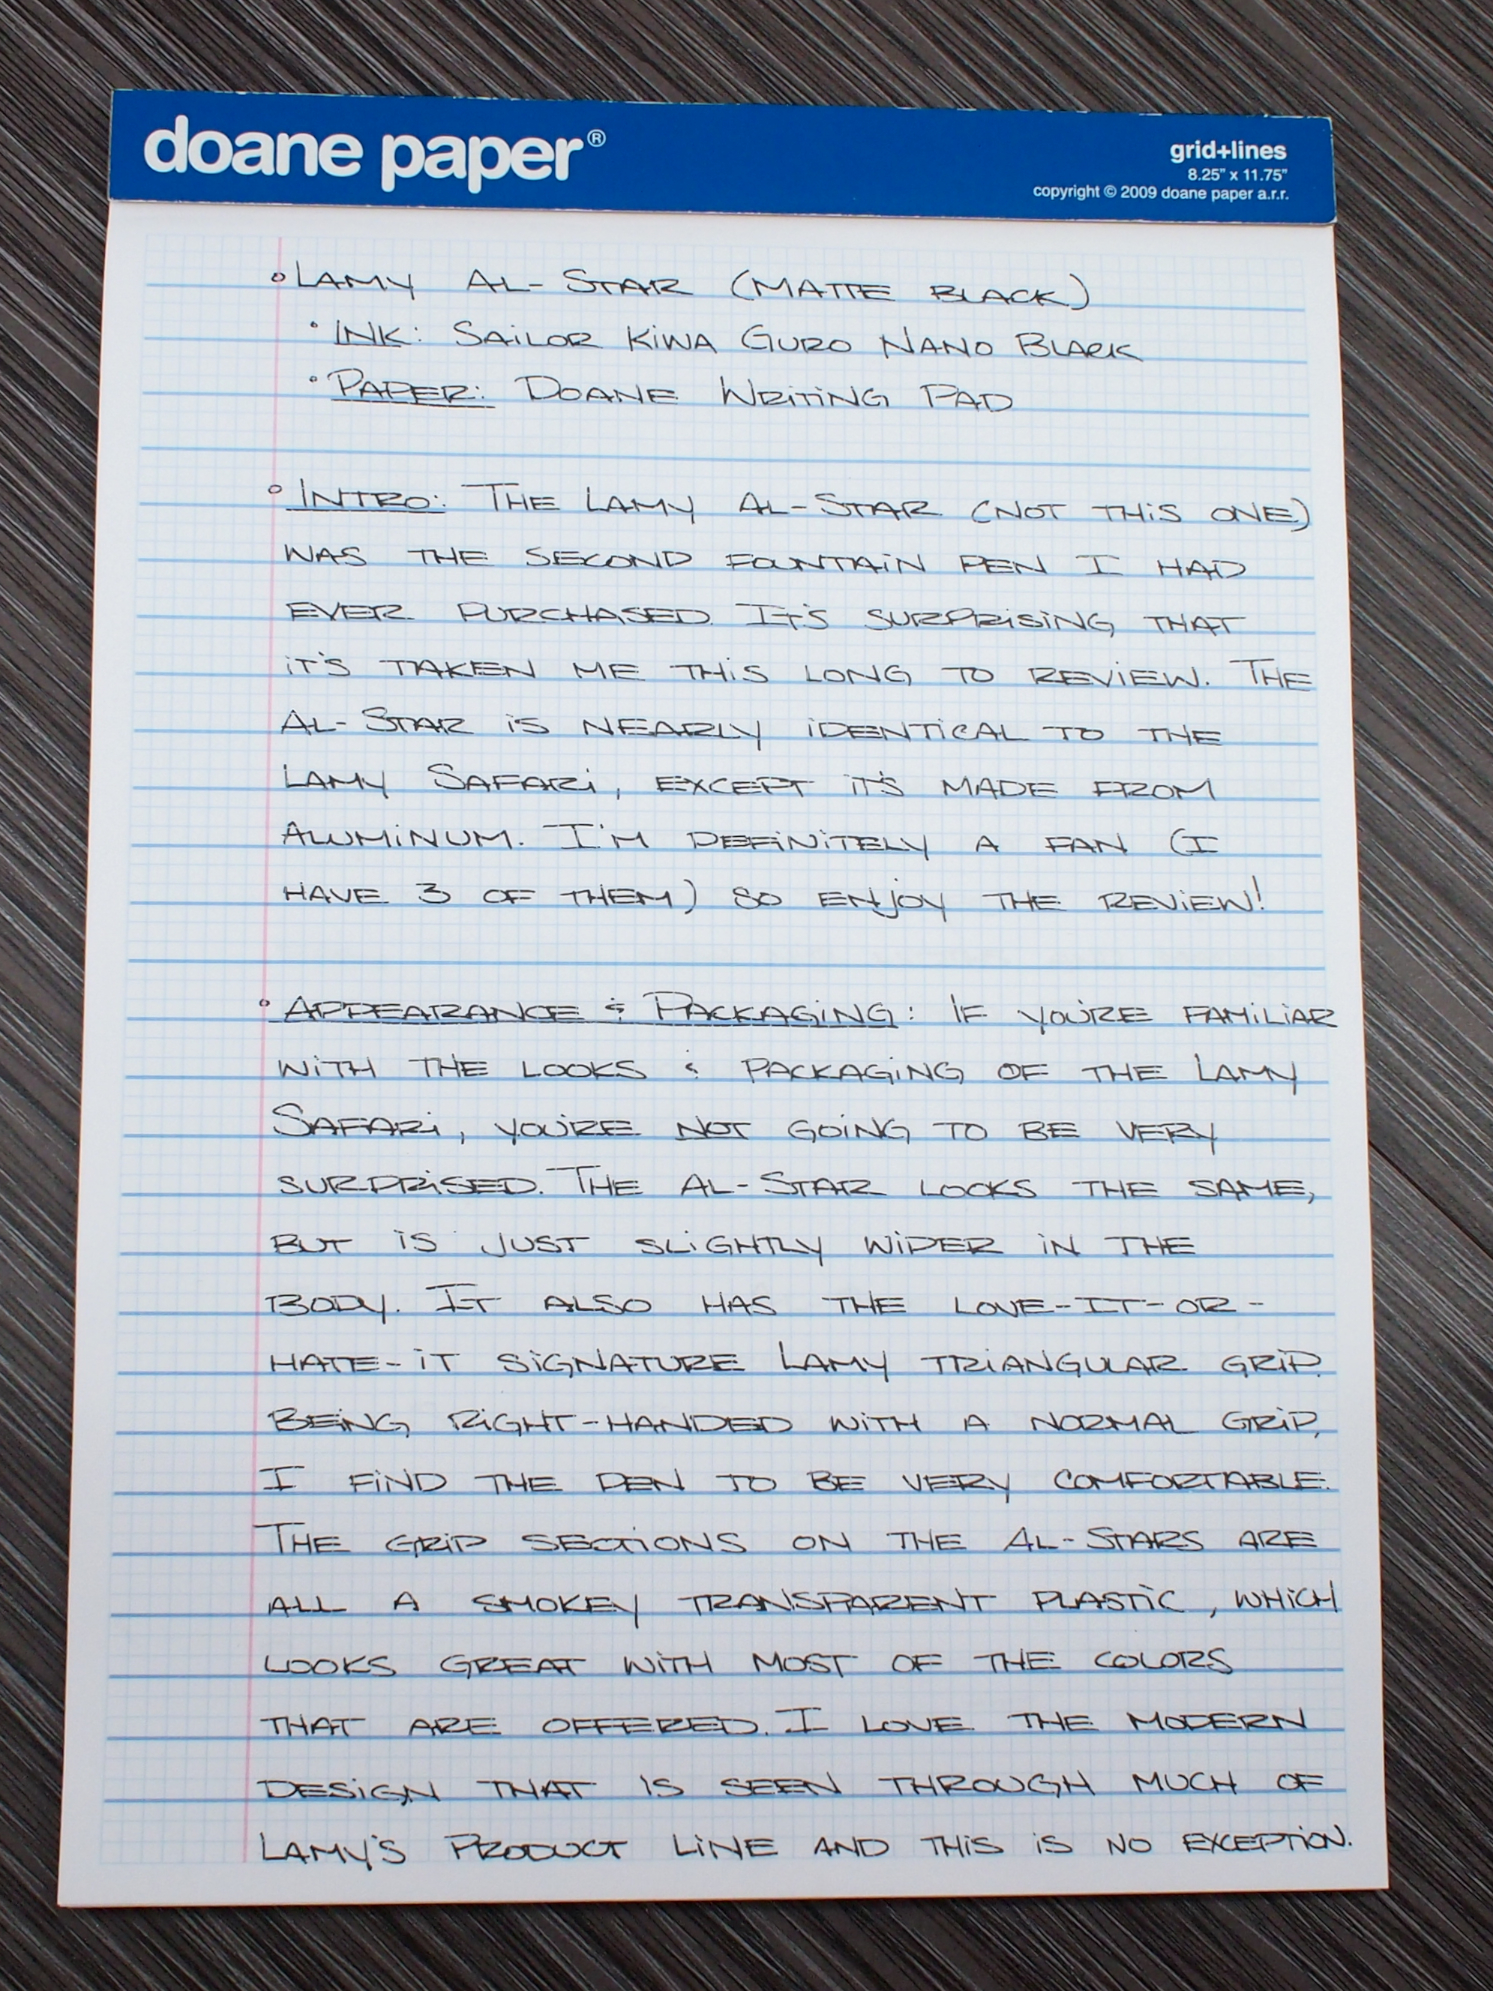 doane paper®
grid+lines
8.25" x 11.75"
copyright © 2009 doane paper a.r.r.
• LAMY AL-STAR (MATTE BLACK)
• INK: SAILOR KIWA GURO NANO BLACK
• PAPER: DOANE WRITING PAD
• INTRO: THE LAMY AL-STAR (NOT THIS ONE)
WAS THE SECOND FOUNTAIN PEN I HAD
EVER PURCHASED. IT'S SURPRISING THAT
IT'S TAKEN ME THIS LONG TO REVIEW. THE
AL-STAR IS NEARLY IDENTICAL TO THE
LAMY SAFARI, EXCEPT IT'S MADE FROM
ALUMINUM. I'M DEFINITELY A FAN (I
HAVE 3 OF THEM) SO ENJOY THE REVIEW!
• APPEARANCE & PACKAGING: IF YOU'RE FAMILIAR
WITH THE LOOKS & PACKAGING OF THE LAMY
SAFARI, YOU'RE NOT GOING TO BE VERY
SURPRISED. THE AL-STAR LOOKS THE SAME,
BUT IS JUST SLIGHTLY WIDER IN THE
BODY. IT ALSO HAS THE LOVE-IT-OR-
HATE-IT SIGNATURE LAMY TRIANGULAR GRIP.
BEING RIGHT-HANDED WITH A NORMAL GRIP,
I FIND THE PEN TO BE VERY COMFORTABLE.
THE GRIP SECTIONS ON THE AL-STARS ARE
ALL A SMOKEY TRANSPARENT PLASTIC, WHICH
LOOKS GREAT WITH MOST OF THE COLORS
THAT ARE OFFERED. I LOVE THE MODERN
DESIGN THAT IS SEEN THROUGH MUCH OF
LAMY'S PRODUCT LINE AND THIS IS NO EXCEPTION.